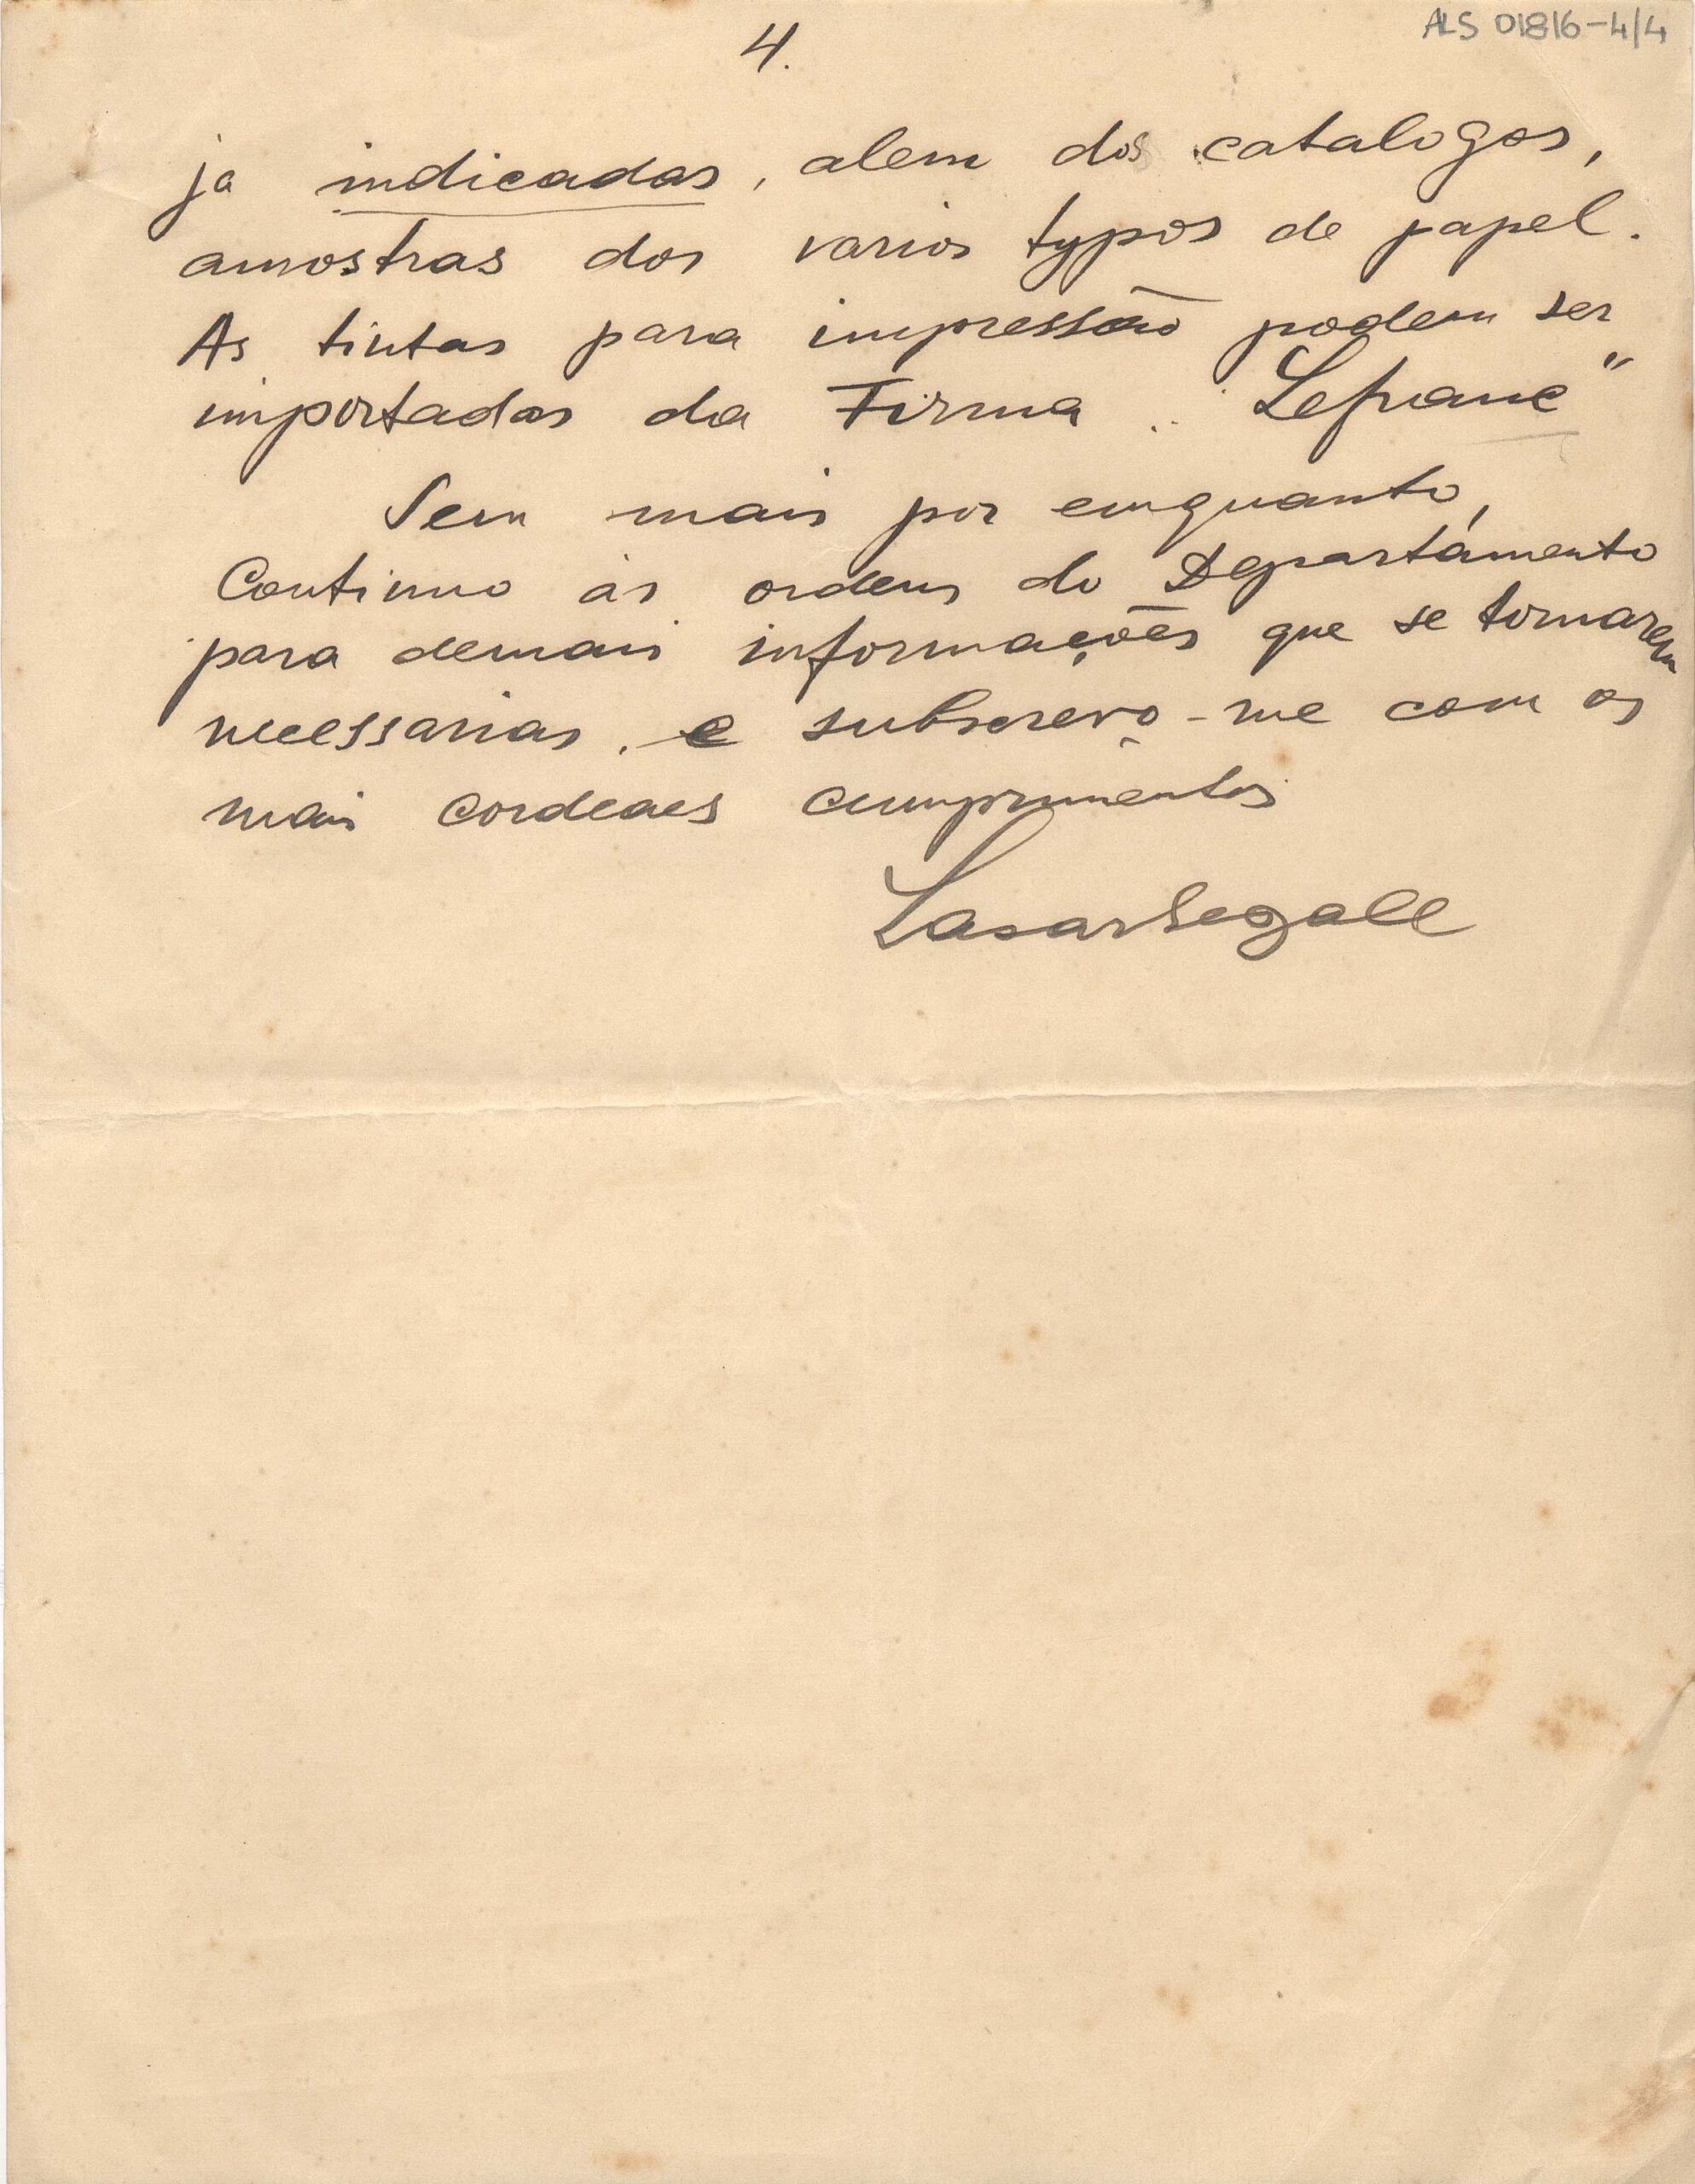 ALS 01816-4/4
4.
ja indicadas, alem dos catalogos,
amostras dos varios typos de papel.
As tintas para impressão podem ser
importadas da Firma „Lefranc"
Sem mais por emquanto,
Continuo às ordens do Departamento
para demais informações que se tornarem
necessarias, e subscrevo-me com os
mais cordeaes cumprimentos
Lasar Segall